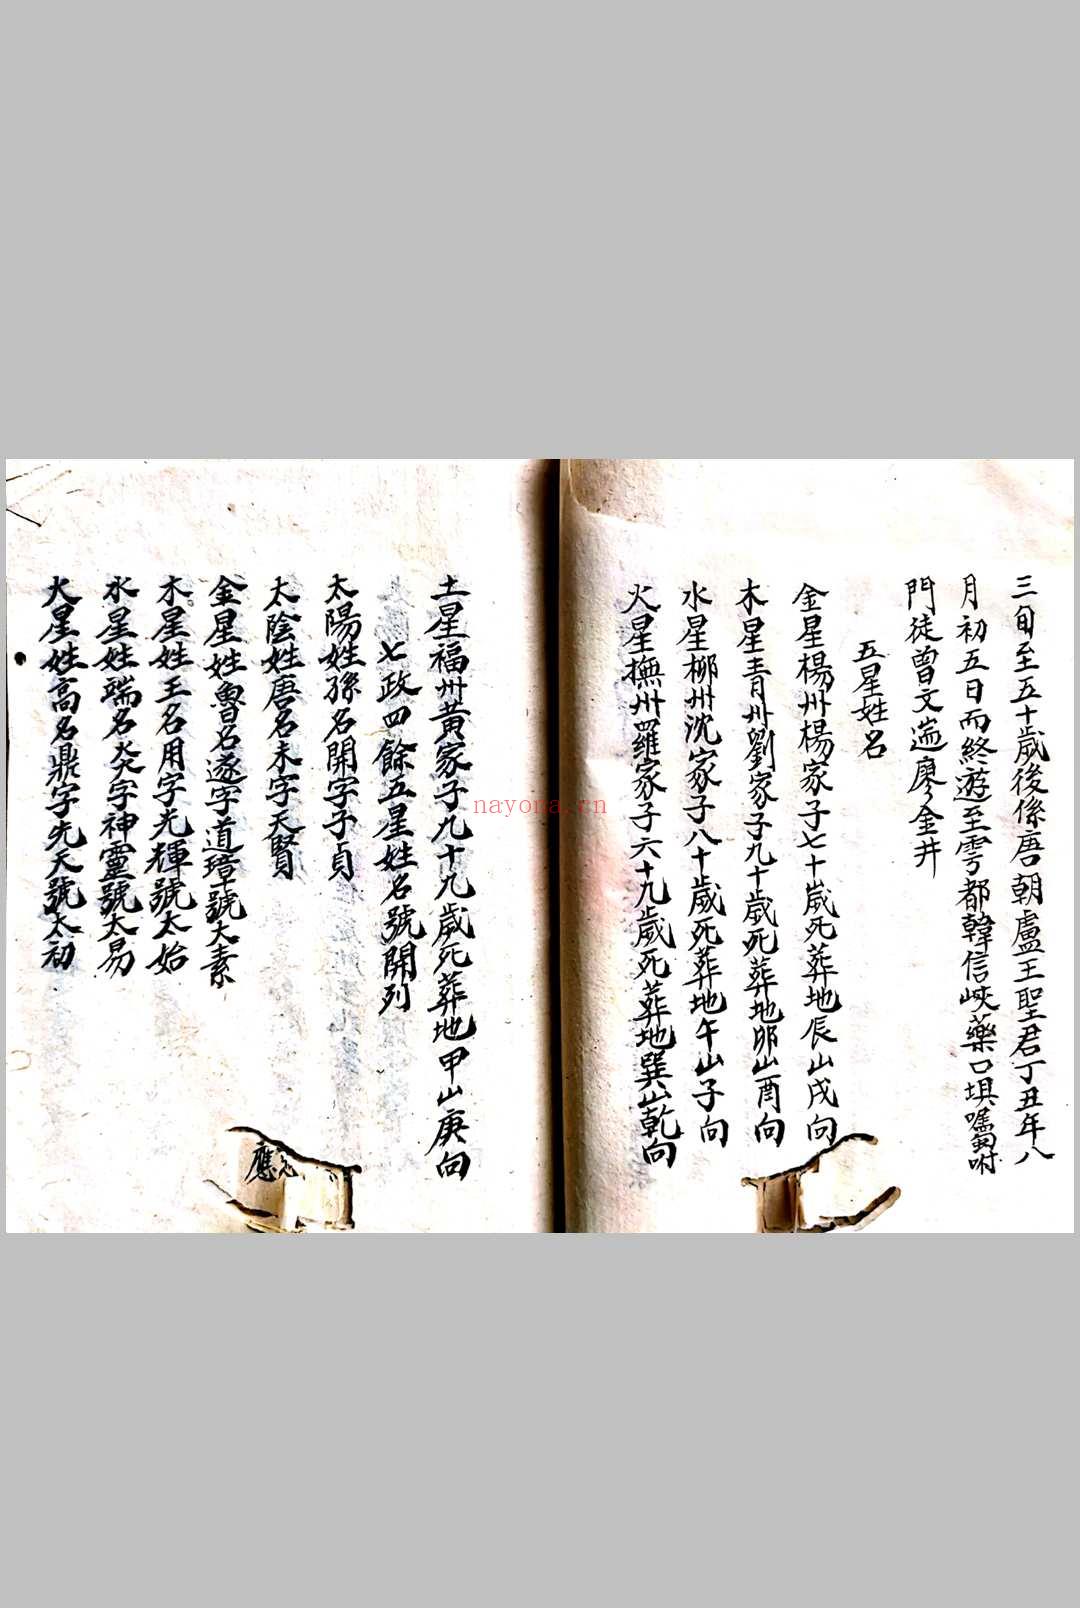 三旬至五十歲後係唐朝盧王聖君丁丑年八
月初五日而終遊至雩都韓信峽藥口垻囑咐
門徒曾文遄廖金井
五星姓名
金星楊州楊家子七十歲死葬地辰山戌向
木星青州劉家子九十歲死葬地卯山酉向
水星柳州沈家子八十歲死葬地午山子向
火星撫州羅家子六十九歲死葬地巽山乾向
土星福州黃家子九十九歲死葬地甲山庚向
七政四餘五星姓名號開列
太陽姓孫名開字子貞
太陰姓唐名末字天賢
金星姓魯名逐字道璋號太素
木星姓王名用字光輝號太始
水星姓端名炎字神靈號太易
火星姓高名鼎字先天號太初
應
nayona.cn